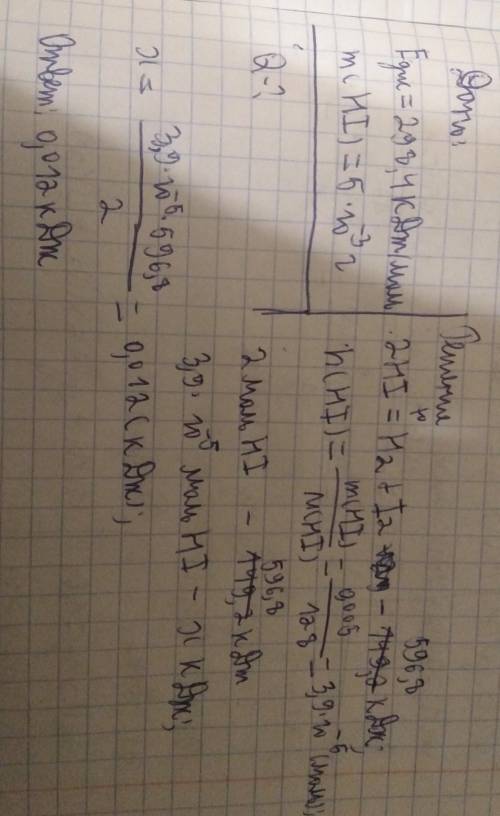 Дано:
Eдис = 298,4 кДж/моль
m(HI) = 5·10⁻³ г
Q-?
Решение
2HI = H₂ + I₂ - 596,8 кДж;
n(HI) = m(HI)/M(HI) = 0,005/128 = 3,9·10⁻⁵ (моль);
2 моль HI - 596,8 кДж
3,9·10⁻⁵ моль HI - x кДж;
x = 3,9·10⁻⁵·596,8/2 = 0,012 (кДж);
Ответ: 0,012 кДж